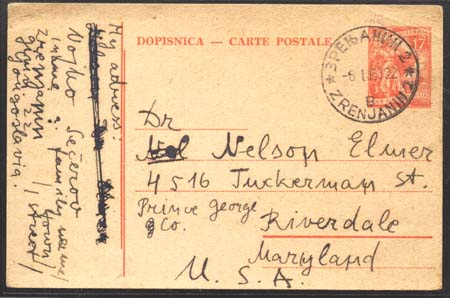 DOPISNICA – CARTE POSTALE
ЗРЕЊАНИН 2
ZRENJANIN 2
Dr
Nelson Elmer
4516 Tuckerman St.
Prince George
Co.
Riverdale
Maryland
U. S. A.
My adress:
Vojko
/name & family name/
Zrenjanin /town/
/street/
Yougoslavia.